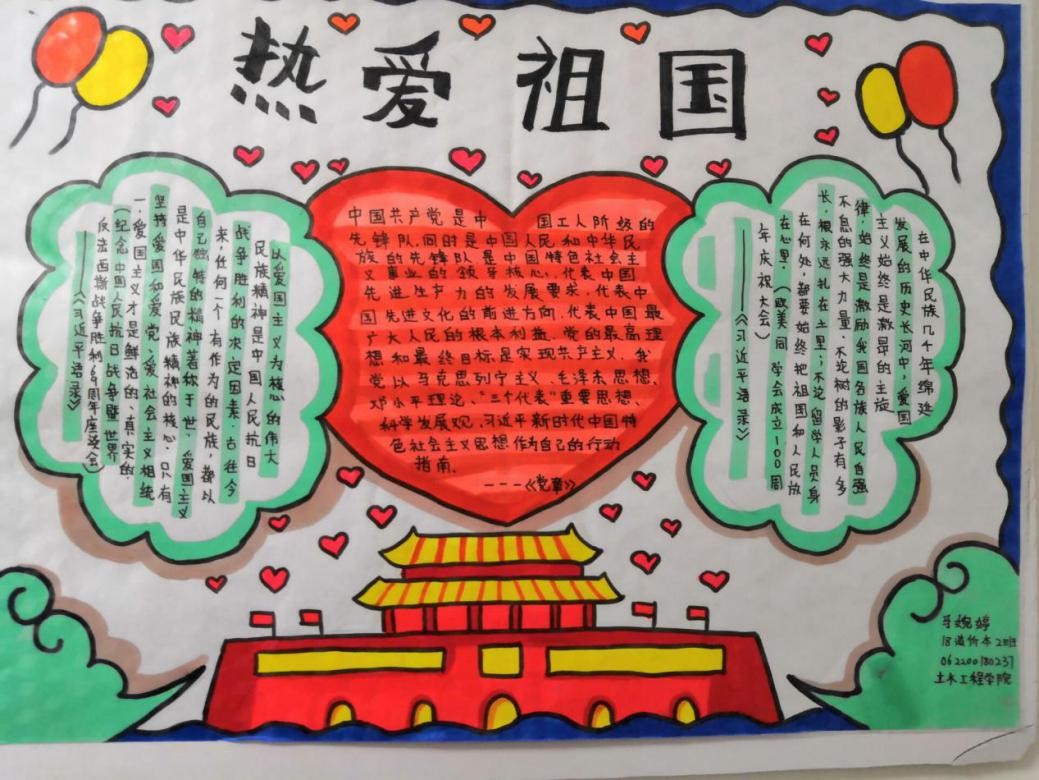 热爱祖国
以爱国主义为核心的伟大
民族精神是中国人民抗日
战争胜利的决定因素。古往今
来,任何一个有作为的民族,都以
自己独特的精神著称于世。爱国主义
是中华民族民族精神的核心。只有
坚持爱国和爱党、爱社会主义相统
一,爱国主义才是鲜活的、真实的。
(纪念中国人民抗日战争暨世界
反法西斯战争胜利69周年座谈会)
——《习近平语录》
中国共产党是中国工人阶级的
先锋队,同时是中国人民和中华民
族的先锋队,是中国特色社会主
义事业的领导核心,代表中国
先进生产力的发展要求,代表中
国先进文化的前进方向,代表中国最
广大人民的根本利益。党的最高理
想和最终目标是实现共产主义。我
党以马克思列宁主义、毛泽东思想、
邓小平理论、“三个代表”重要思想、
科学发展观、习近平新时代中国特
色社会主义思想作为自己的行动
指南。
---《党章》
在中华民族几千年绵延
发展的历史长河中,爱国
主义始终是激昂的主旋
律,始终是激励我国各族人民自强
不息的强大力量。不论树的影子有多
长,根永远扎在土里;不论留学人员身
在何处,都要始终把祖国和人民放
在心里。(欧美同学会成立100周
年庆祝大会)
——《习近平语录》
马婉婷
18造价本2班
062200180237
土木工程学院